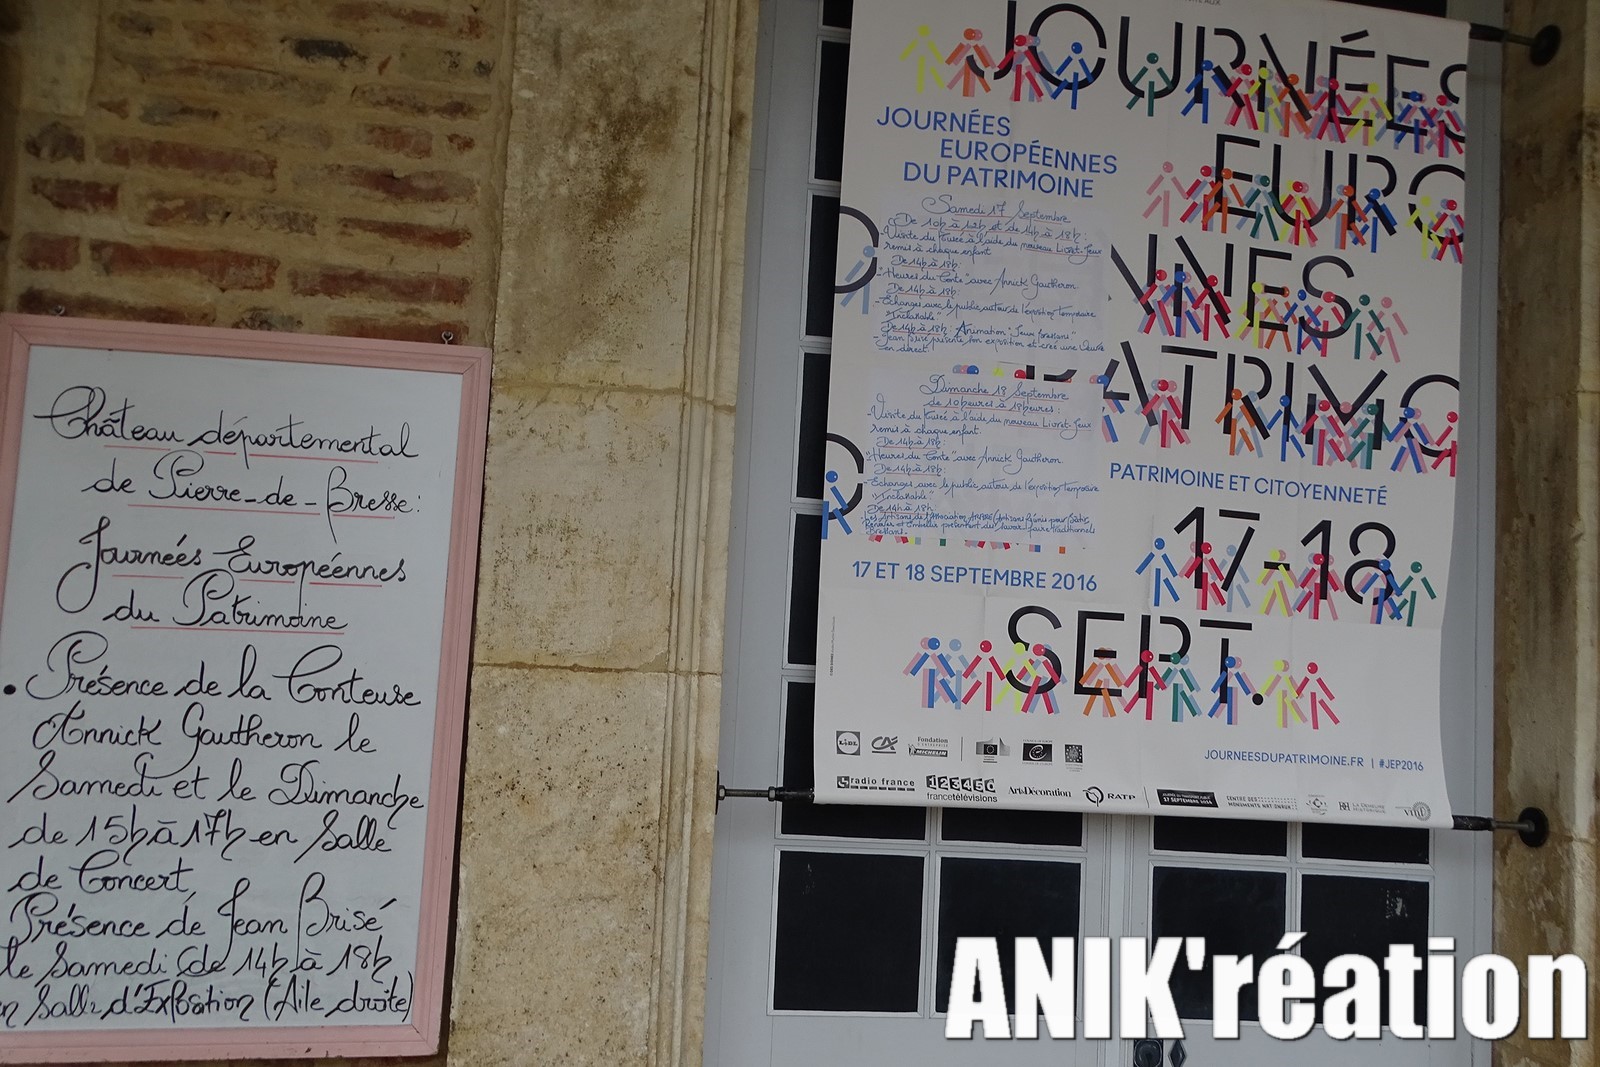 Château départemental
de Pierre-de-Bresse:
Journées Européennes
du Patrimoine
. Présence de la Conteuse
Annick Gautheron le
Samedi et le Dimanche
de 15h à 17h en Salle
de Concert
Présence de Jean Brisé
le Samedi (de 14h à 18h
en Salle d'Exposition (Aile droite)
JOURNÉES
EURO
NNES
PATRIMO
JOURNÉES
EUROPÉENNES
DU PATRIMOINE
Samedi 17 Septembre
De 10h à 12h et de 14h à 18h:
-Visite du Musée à l'aide du nouveau Livret-Jeux
remis à chaque enfant
De 14h à 18h:
-"Heures du Conte" avec Annick Gautheron.
De 14h à 18h:
-Echanges avec le public autour de l'exposition temporaire
"Inclassable"
De 14h à 18h: Animation "Jeux bressans"
-Jean Brisé présente son exposition et crée une œuvre
en direct.
Dimanche 18 Septembre
de 10heures à 18heures:
-Visite du Musée à l'aide du nouveau Livret-Jeux
remis à chaque enfant.
De 14h à 18h:
"Heures du Conte" avec Annick Gautheron.
De 14h à 18h:
-Echanges avec le public autour de l'exposition temporaire
"Inclassable"
De 14h à 18h
Les Artisans de l'Association pour Bâtir
Rénover et Embellir présentent du savoir-faire traditionnels
Bressans.
PATRIMOINE ET CITOYENNETÉ
17-18
17 ET 18 SEPTEMBRE 2016
SEPT.
JOURNEESDUPATRIMOINE.FR | #JEP2016
LIDL
CA
Fondation
MICHELIN
radio france
123456
francetélévisions
Art&Décoration
RATP
CENTRE DES
MONUMENTS NATIONAUX
LA DEMEURE
ANIK'réation